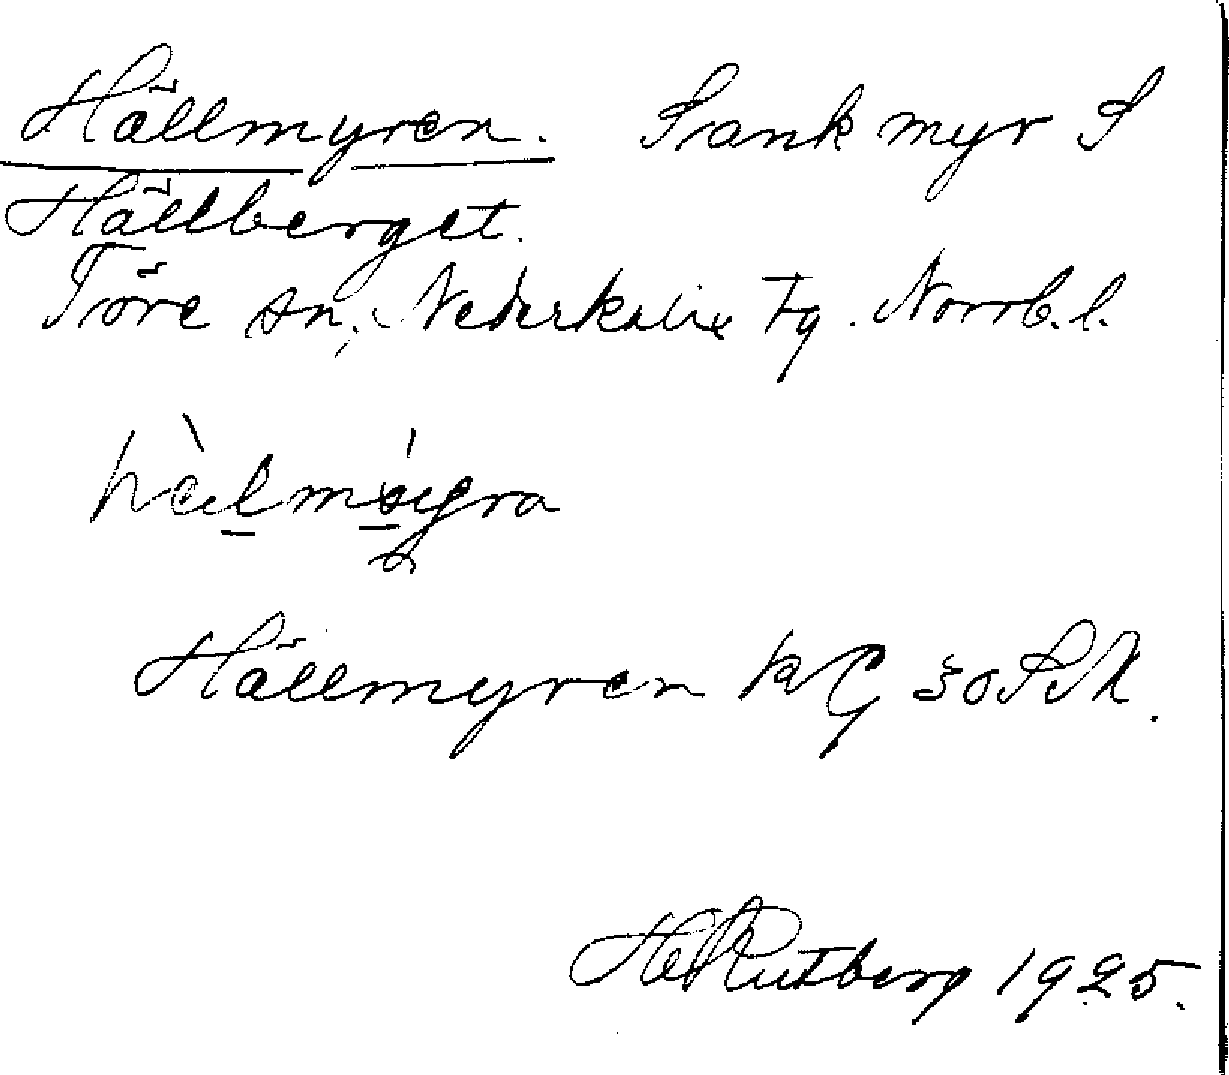 Hällmyren. Sank myr S
Hällberget.
Töre sn, Nederkalix tg. Norrb. l.
Hällmyren KG 30 SV.
H Rutberg 1925.